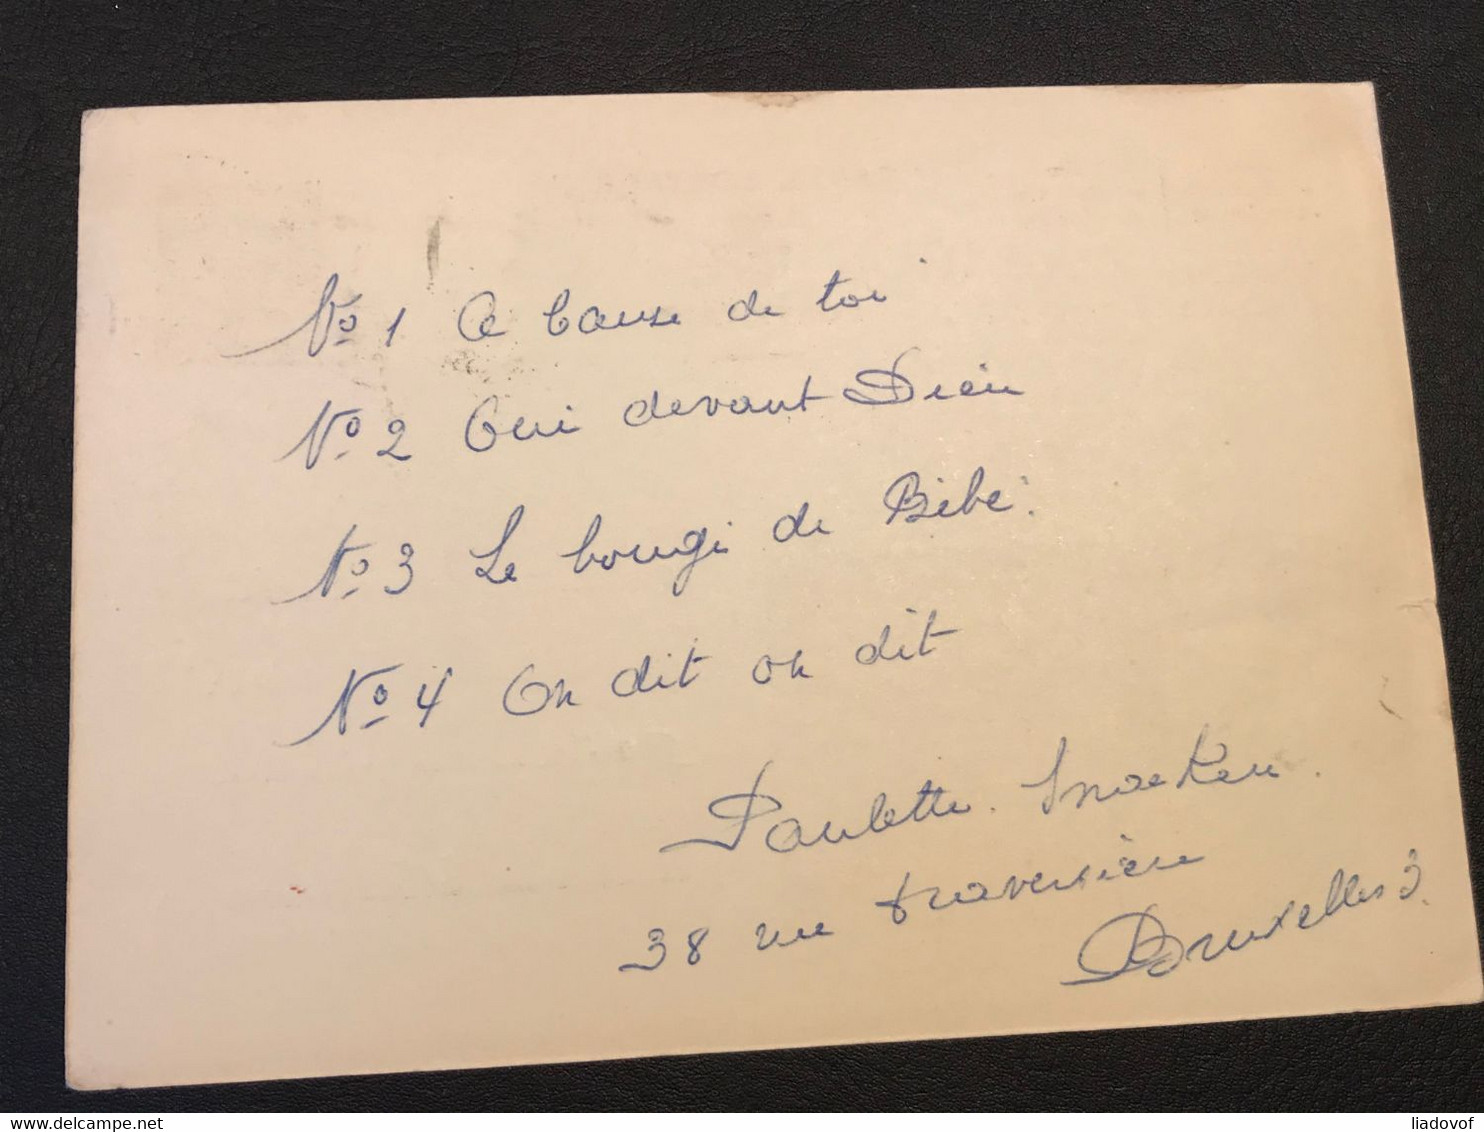 www.delcampe.net
No 1 A Cause de toi
No 2 Oui devant Dieu
No 3 Le bougi de Bébé.
No 4 On dit on dit
Paulette. Snoeken.
38 rue traversière
Bruxelles 3.
liadovof